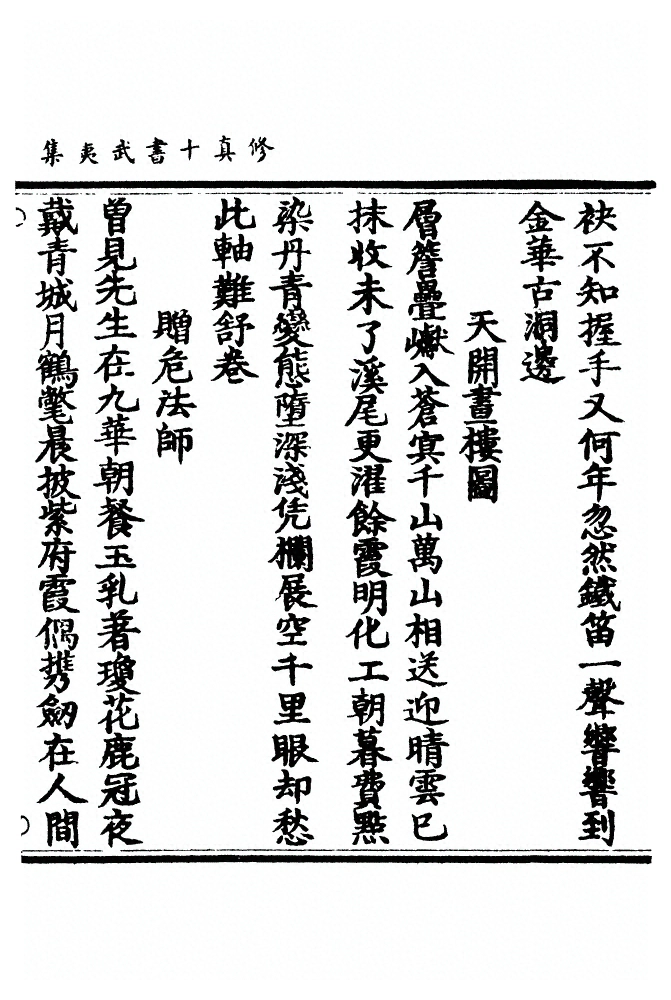 修真十書武夷集
袂不知握手又何年忽然鐵笛一聲響響到
金華古洞邊
天開畫樓圖
層簷疊巘入蒼冥千山萬山相送迎晴雲已
抹收未了溪尾更濯餘霞明化工朝暮費點
染丹青變態墮深淺凭欄展空千里眼却愁
此軸難舒卷
贈危法師
曽見先生在九華朝餐玉乳著瓊花鹿冠夜
戴青城月鶴氅晨披紫府霞偶携劒在人間